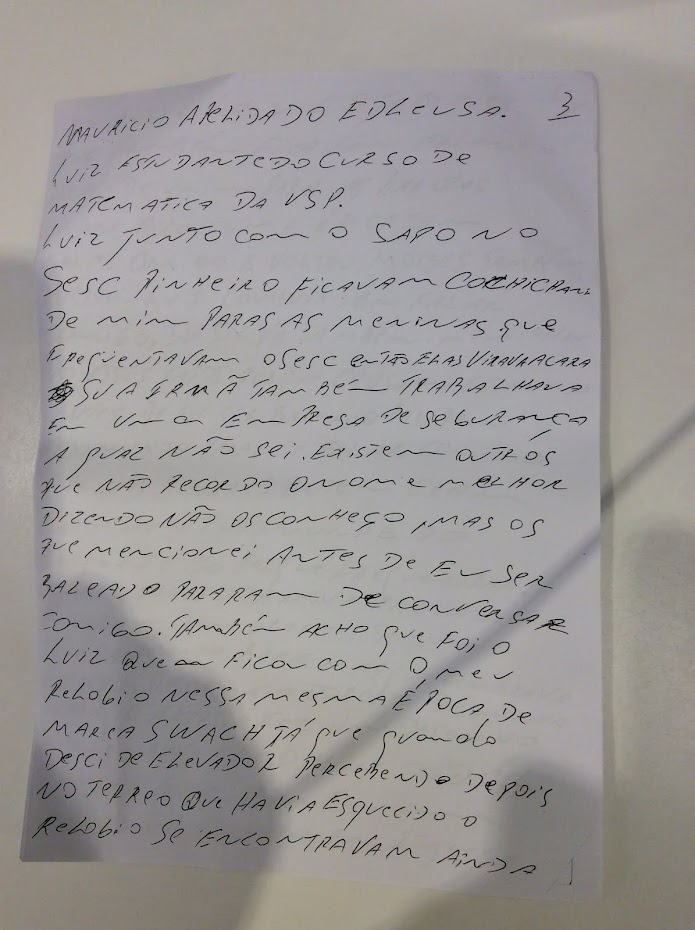 MAURICIO APELIDADO EDLEUSA. 3
LUIZ ESTUDANTE DO CURSO DE
MATEMATICA DA USP.
LUIZ JUNTO COM O SAPO NO
SESC PINHEIRO FICAVAM COCHICHAN
DE MIM PARAS AS MENINAS que
O SESC ENTÃO ELAS VIRAVA A CARA
SUA IRMÃ TAMBÉM TRABALHAVA
EM UMA EMPRESA DE SEGURANÇA
A QUAL NÃO SEI. EXISTEM OUTROS
QUE NÃO RECORDO O NOME MELHOR
DIZENDO NÃO OS CONHEÇO, MAS OS
QUE MENCIONEI ANTES DE EU SER
BALEADO PARARAM DE CONVERSAR
COMIGO. TAMBÉM ACHO QUE FOI O
LUIZ QUE FICOU COM O MEU
RELOGIO NESSA MESMA EPOCA DE
MARCA SWACH JÁ que quando
DESCI DE ELEVADOR PERCEBENDO DEPOIS
NO TERREO QUE HAVIA ESQUECIDO O
RELOGIO SE ENCONTRAVAM AINDA